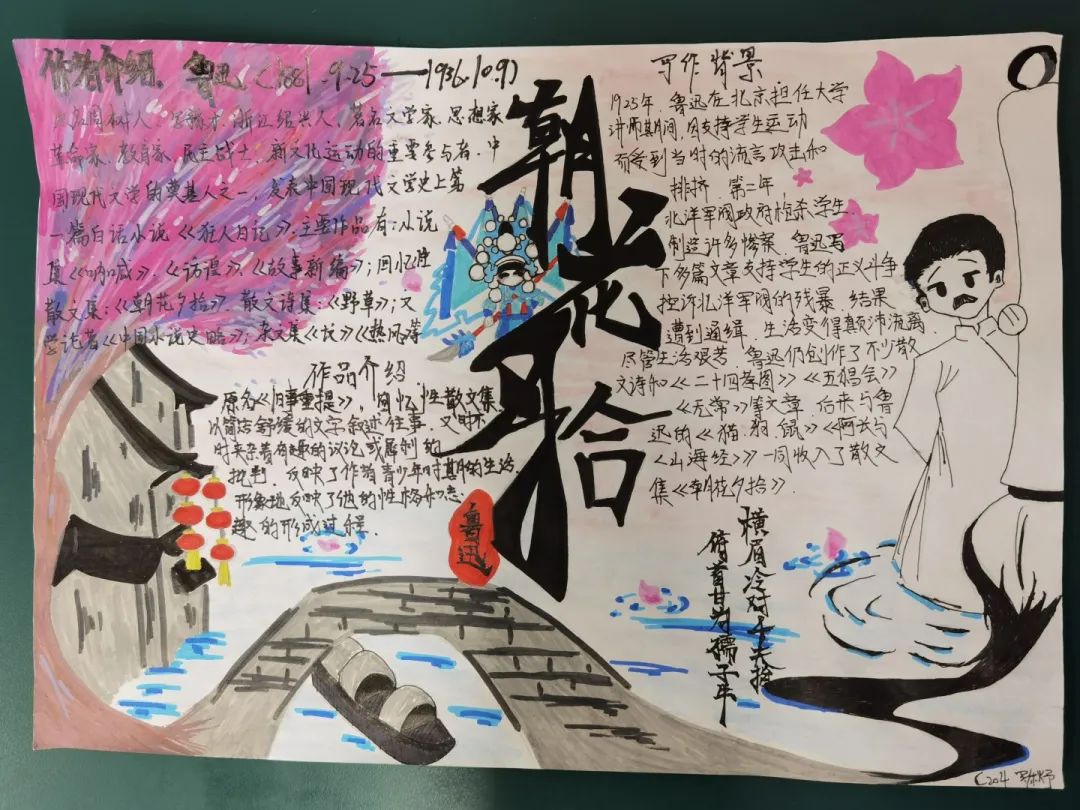 作者介绍. 鲁迅. (1881.9.25——1936.10.9)
原名周树人. 字豫才, 浙江绍兴人, 著名文学家, 思想家
革命家. 教育家. 民主战士. 新文化运动的重要参与者. 中
国现代文学的奠基人之一, 发表中国现代文学史上第
一篇白话小说《狂人日记》. 主要作品有: 小说
集《呐喊》.《彷徨》.《故事新编》; 回忆性
散文集:《朝花夕拾》 散文诗集:《野草》; 文
学论著《中国小说史略》; 杂文集《坟》《热风等
朝花夕拾
作品介绍.
原名《旧事重提》, 回忆性散文集
以简洁舒缓的文字叙述往事. 又时不
时夹杂着有趣的议论或犀利的
批判. 反映了作者青少年时期的生活.
形象地反映了他的性格和志
趣的形成过程.
鲁迅
写作背景
1925年, 鲁迅在北京担任大学
讲师期间, 因支持学生运动
而受到当时的流言攻击和
排挤. 第二年,
北洋军阀政府枪杀学生.
制造许多惨案. 鲁迅写
下多篇文章支持学生的正义斗争
控诉北洋军阀的残暴. 结果
遭到通缉. 生活变得颠沛流离.
尽管生活艰苦. 鲁迅仍创作了不少散
文诗和《二十四孝图》《五猖会》
《无常》等文章. 后来与鲁
迅的《猫. 狗. 鼠》《阿长与
《山海经》》一同收入了散文
集《朝花夕拾》.
横眉冷对千夫指
俯首甘为孺子牛
C204